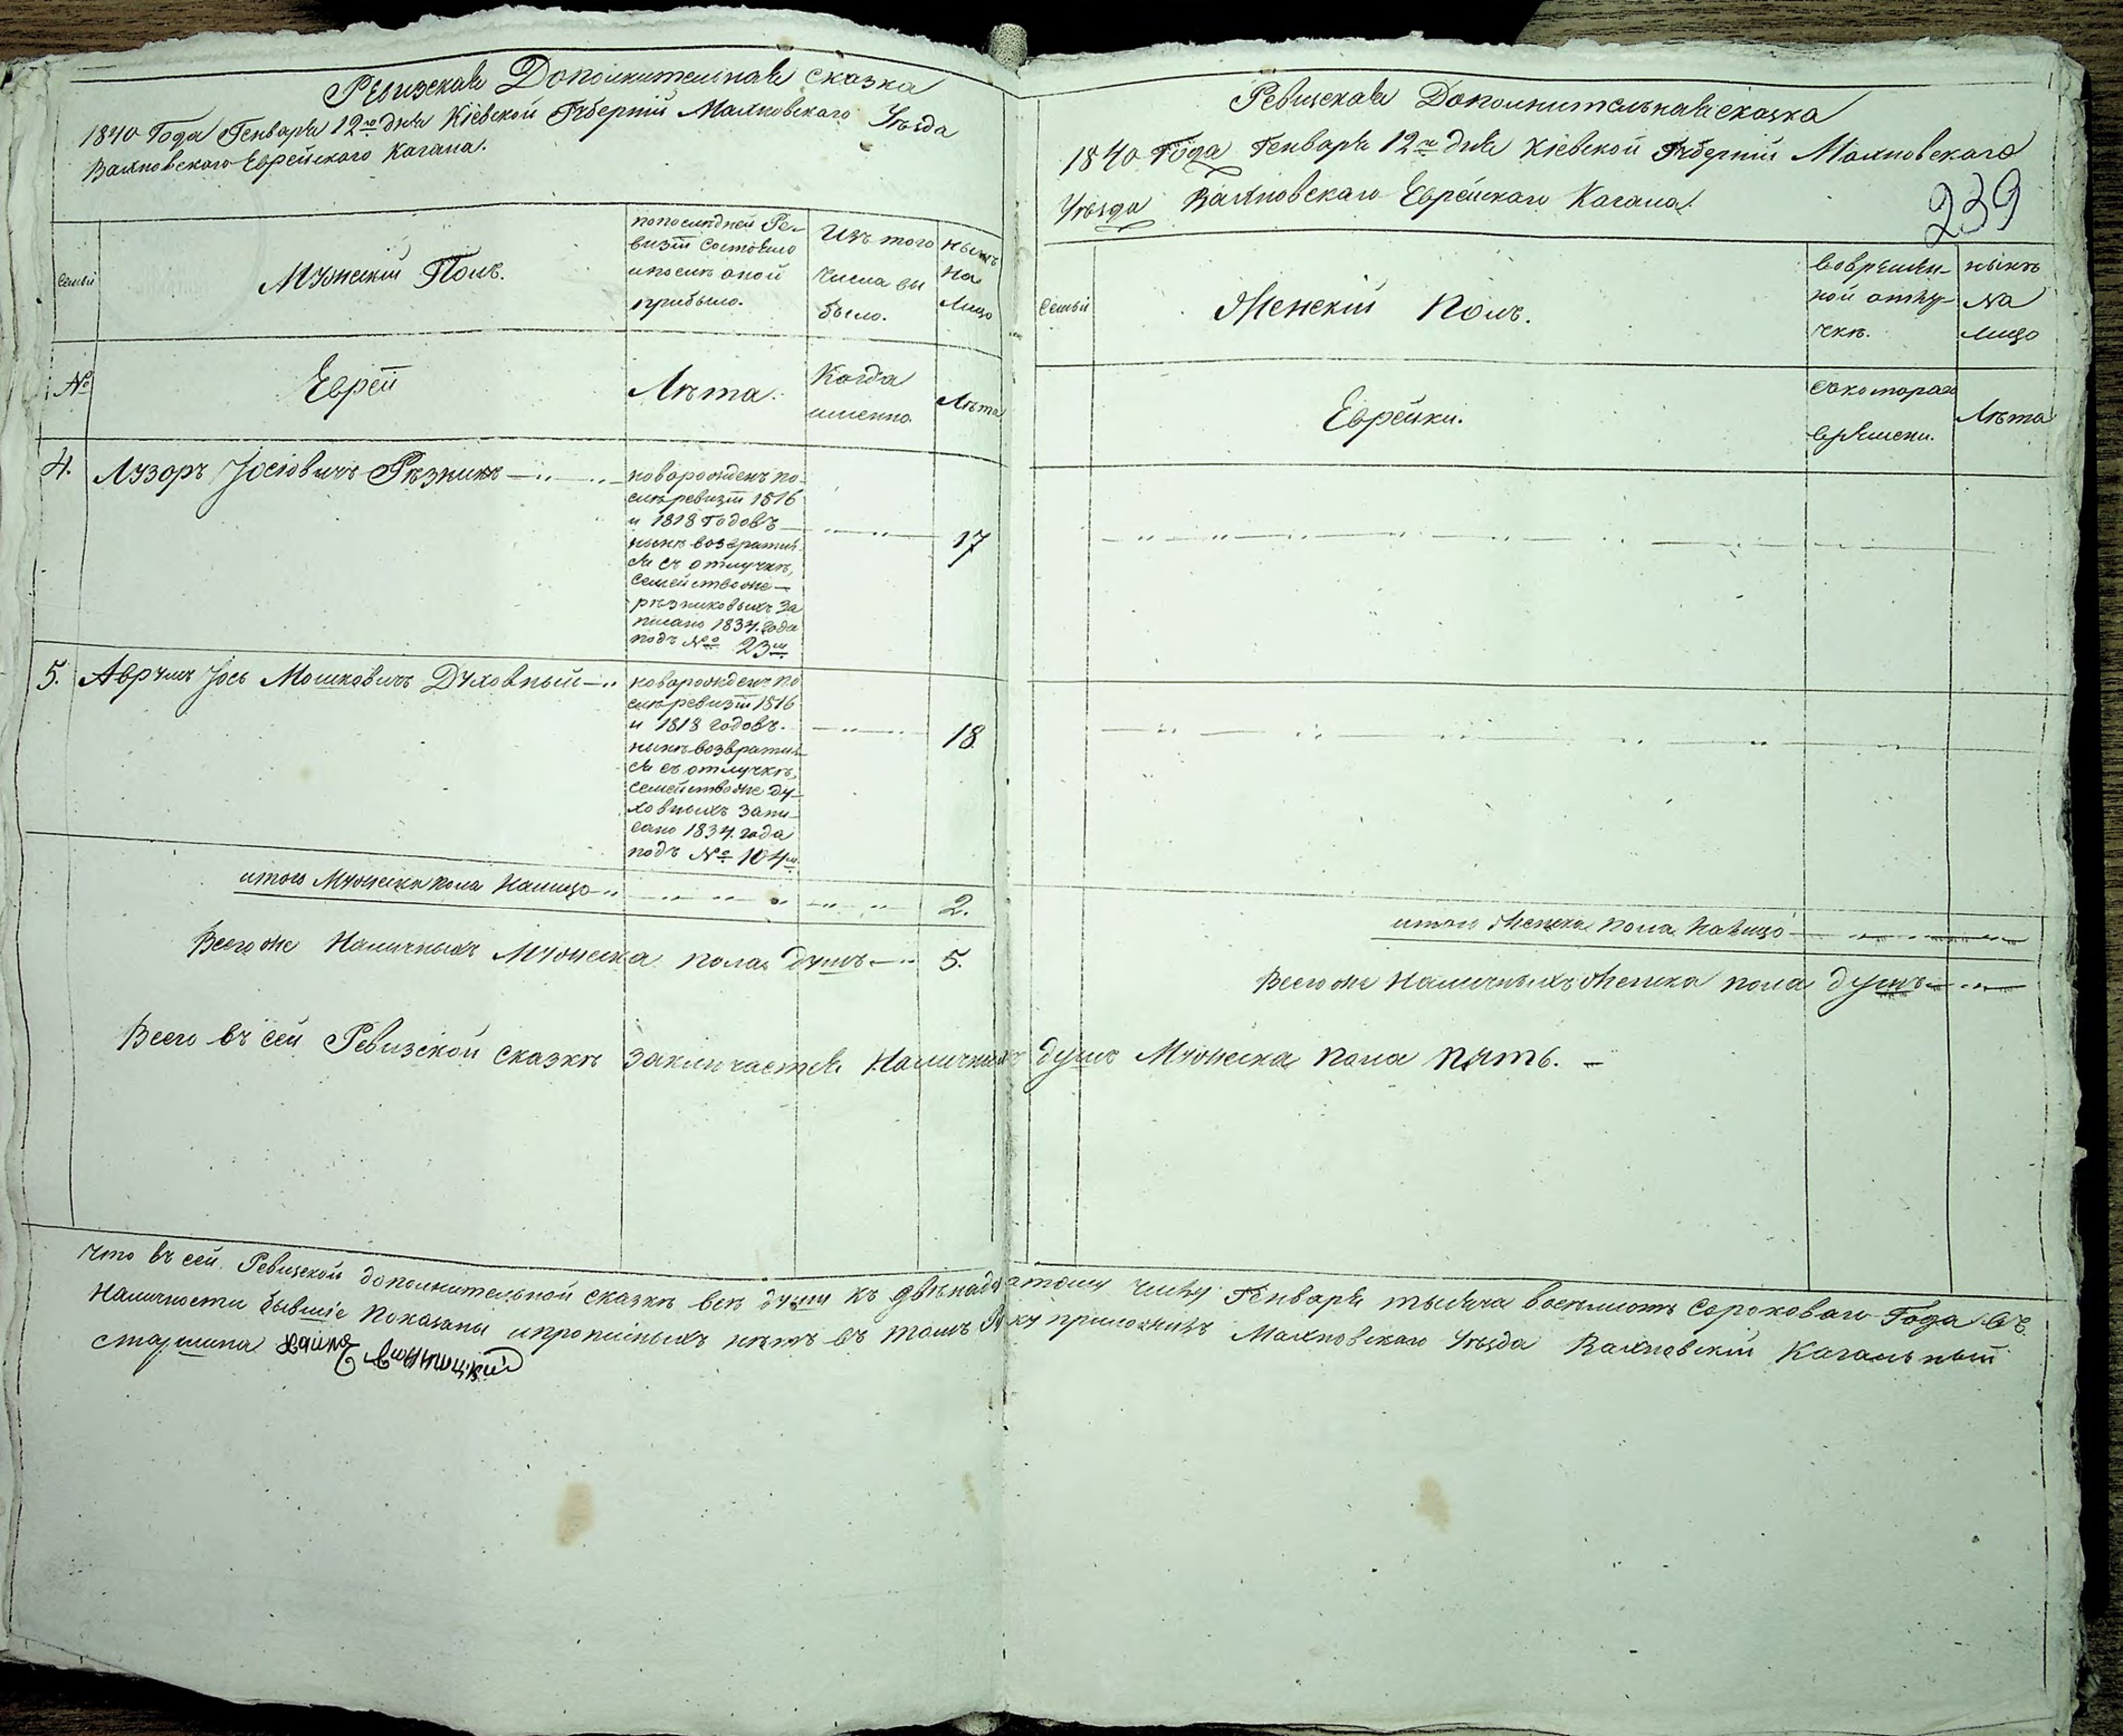 Ревизская Дополнительная сказка
1840 Года Генваря 12го дня Кіевской Губерніи Махновского Уѣзда
Вахновского Еврейского Кагала.
семьи
Мужескій Полъ.
попослѣдней Ре-
визіи состояло
ипослѣ оной
прибыло.
Изъ того
числа вы
было.
нынѣ
на
лицо
№
Евреи
Лѣта.
Когда
именно.
Лѣта
4.
Лузоръ Іосіовичъ Рѣзникъ
новорожденъ по-
слѣ ревизіи 1816
и 1818 годовъ
нынѣ возвратил
ся съ отлучкѣ,
семейство же
рѣзниковыхъ за
писано 1834. года
подъ № 23м
17
5.
Аврумъ Іось Мошковичъ Духовный
новорожденъ по
слѣ ревизіи 1816
и 1818 годовъ.
нынѣ возвратил
ся съ отлучкѣ,
семейство же ду-
ховныхъ запи-
сано 1834. года
подъ № 104м
18
итого Мужеска пола Налицо
2.
Всего же Наличныхъ Мужеска пола душъ
5.
Ревизская Дополнительная сказка
1840 Года Генваря 12го дня Кіевской Губерніи Махновского
Уѣзда Вахновского Еврейского Кагала.
239
семьи
Женскій Полъ.
вовремен-
ной отлу-
чкѣ.
нынѣ
на
лицо
Еврейки.
скотораго
времени.
Лѣта
итого Женска пола налицо
Всего же Наличныхъ Женска пола душъ
Всего въ сей Ревизской сказкѣ заключается Наличныхъ душъ Мужеска пола пять.
Что въ сей Ревизской дополнительной сказкѣ всѣ души къ двѣнадцатому числу Генваря тысяча восемьсотъ сороковаго Года въ
Наличности бывшіе показаны ипрописныхъ нѣтъ въ томъ Руку приложилъ Махновского Уѣзда Вахновскій Кагальный
старшина